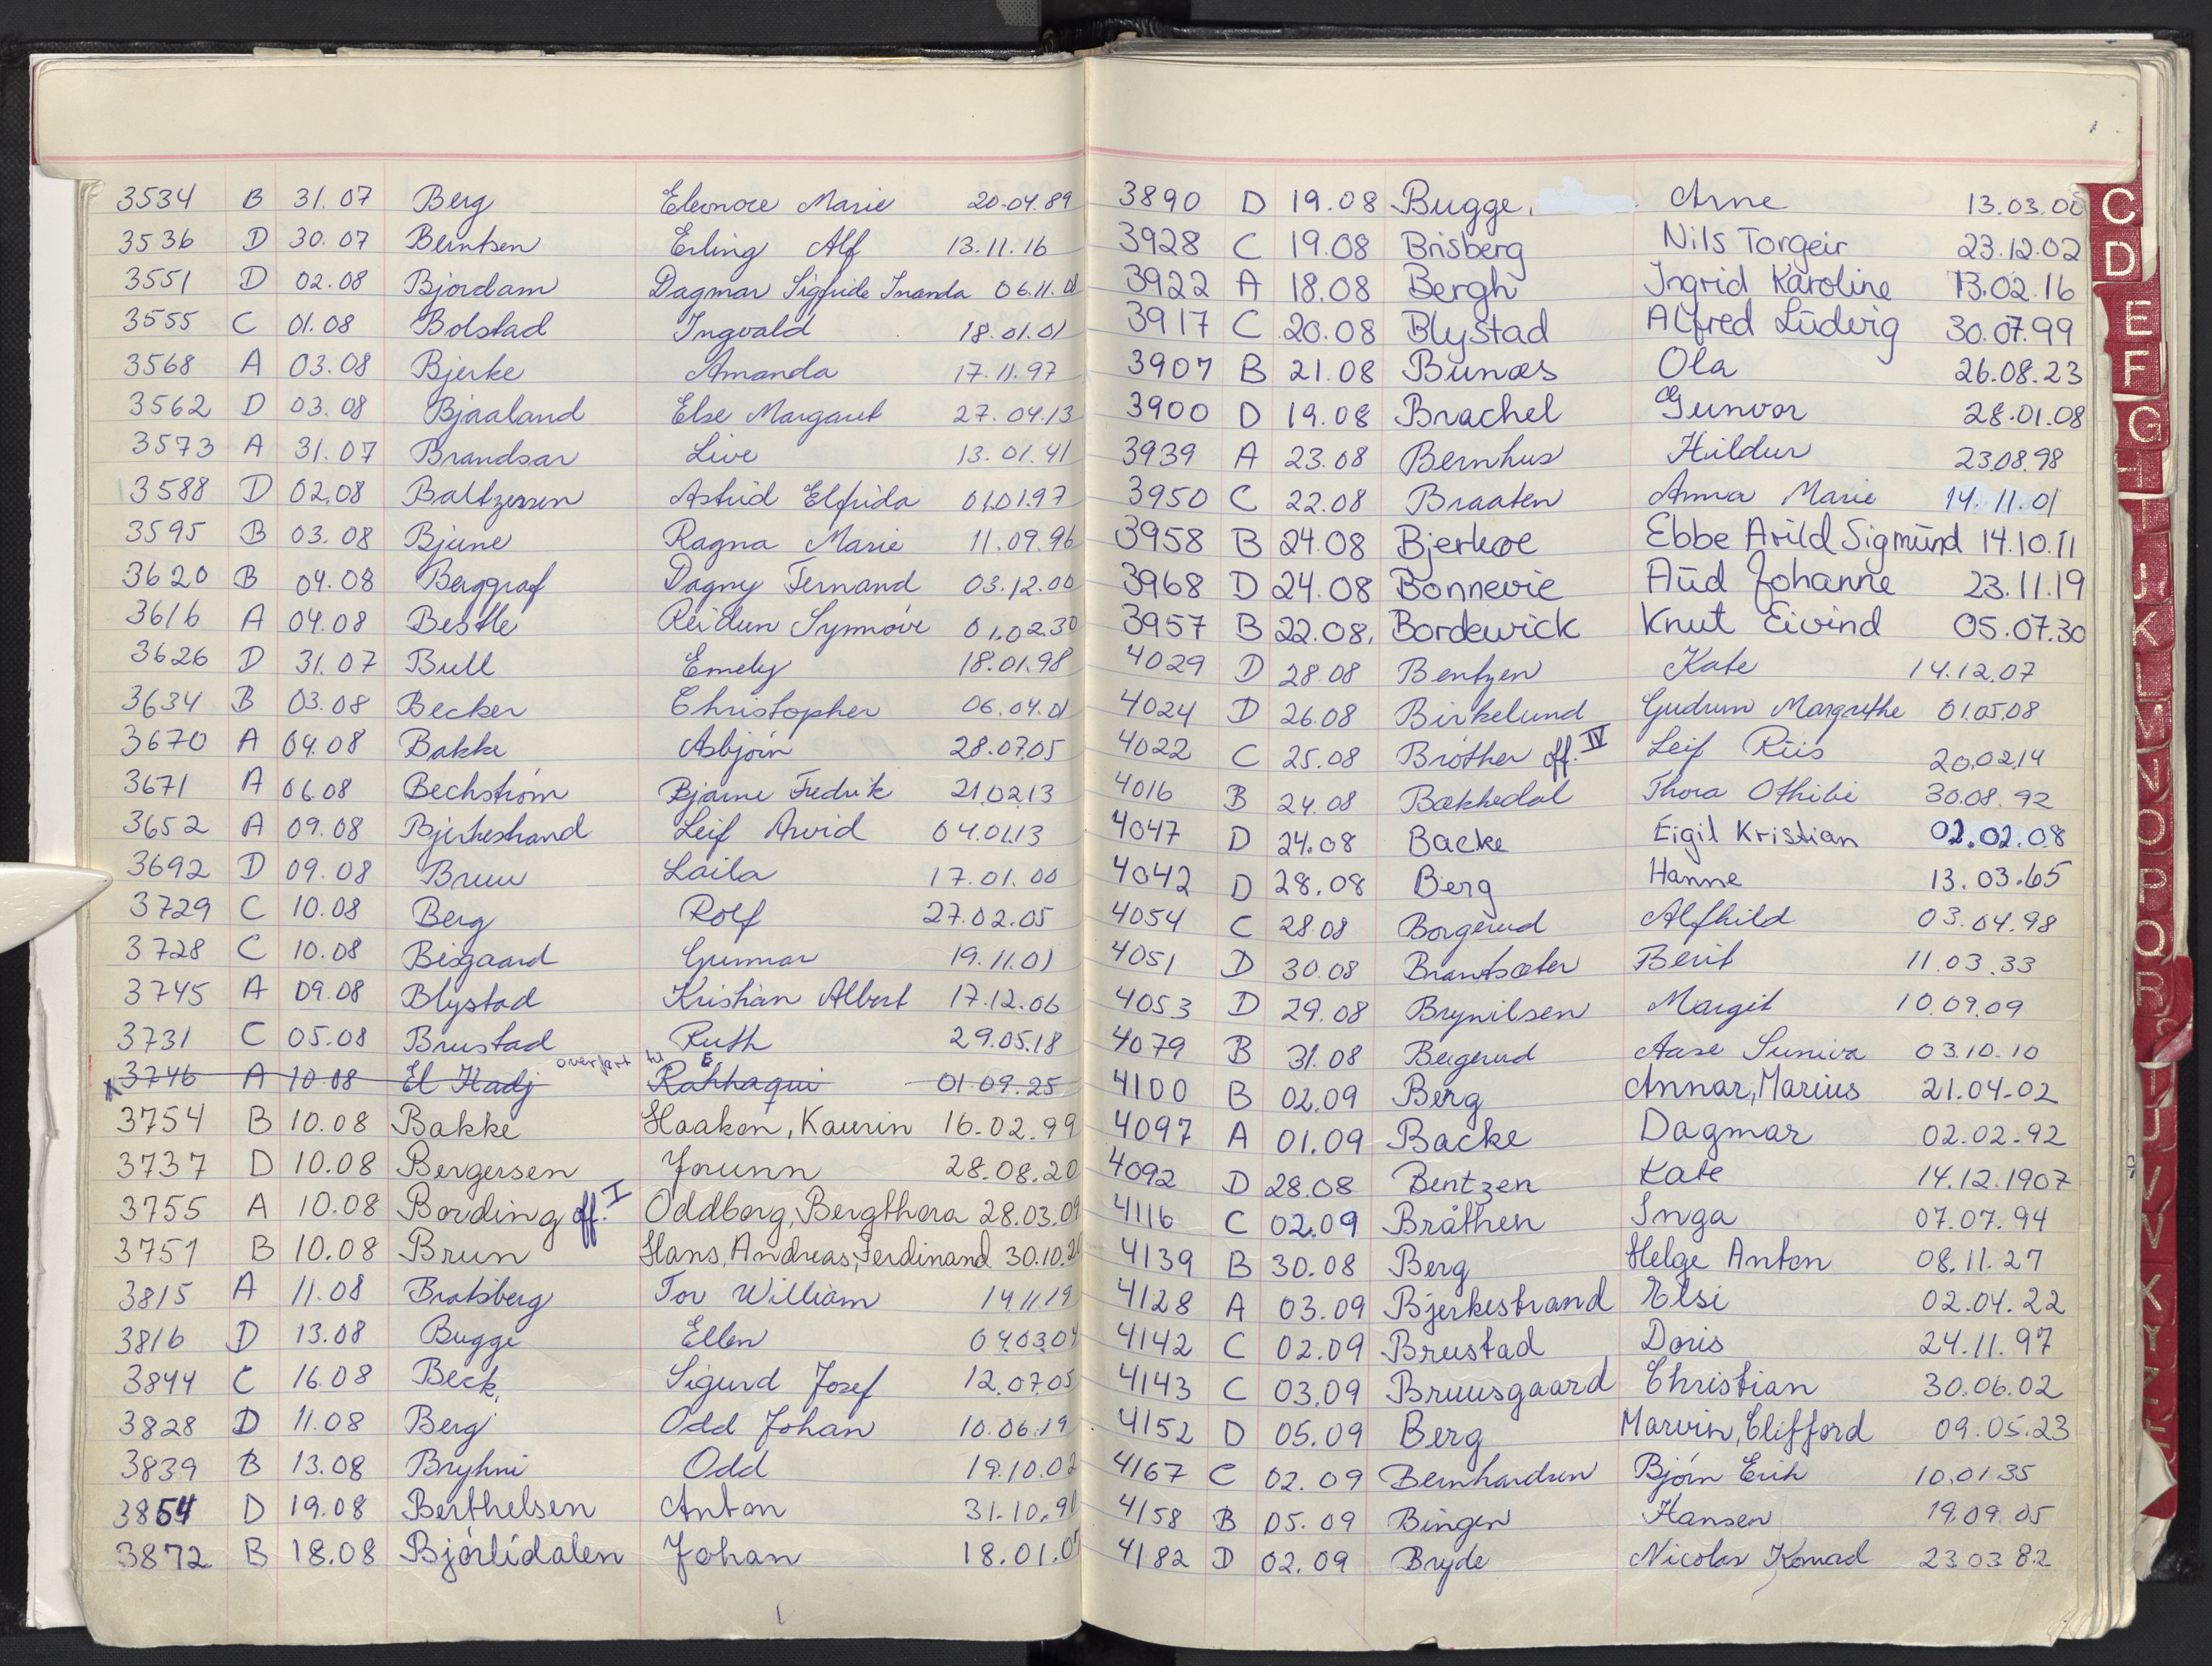 3534 B 31.07 Berg Eleonore Marie 20.04.89
3536 D 30.07 Berntsen Erling Alf 13.11.16
3551 D 02.08 Bjørdam Dagmar Sigfride Inanda 06.11.01
3555 C 01.08 Bolstad Ingvald 18.01.01
3568 A 03.08 Bjerke Amanda 17.11.97
3562 D 03.08 Bjaaland Else Margaret 27.04.13
3573 A 31.07 Brandsar Live 13.01.41
3588 D 02.08 Baltzersen Astrid Elfrida 01.01.97
3595 B 03.08 Bjune Ragna Marie 11.09.96
3620 B 04.08 Berggraf Dagny Fernand 03.12.00
3616 A 04.08 Bestle Reidun Synnøve 01.02.30
3626 D 31.07 Bull Emely 18.01.98
3634 B 03.08 Becker Christopher 06.04.01
3670 A 04.08 Bakke Asbjørn 28.07.05
3671 A 06.08 Bechstrøm Bjarne Fredrik 21.02.13
3652 A 09.08 Bjerkestrand Leif Arvid 04.01.13
3692 D 09.08 Bruu Laila 17.01.00
3729 C 10.08 Berg Rolf 27.02.05
3728 C 10.08 Bisgaard Gunnar 19.11.01
3745 A 09.08 Blystad Kristian Albert 17.12.06
3731 C 05.08 Brustad Ruth 29.05.18
overført til E
x 3746 A 10.08 El Hadj Rahhaqui 01.09.25
3754 B 10.08 Bakke Haakon, Kaurin 16.02.99
3737 D 10.08 Bergersen Jorunn 28.08.20
3755 A 10.08 Bording off. I Oddborg, Bergthora 28.03.09
3751 B 10.08 Brun Hans, Andreas, Ferdinand 30.10.
3815 A 11.08 Bratsberg Tor William 14.11.19
3816 D 13.08 Bugge Ellen 04.03.04
3844 C 16.08 Beck Sigurd Josef 12.07.05
3828 D 11.08 Berg Odd Johan 10.06.19
3839 B 13.08 Bryhni Odd 19.10.02
3854 D 19.08 Berthelsen Anton 31.10.91
3872 B 18.08 Bjørlidalen Johan 18.01.
3890 D 19.08 Bugge, Arne 13.03.06
3928 C 19.08 Brisberg Nils Torgeir 23.12.02
3922 A 18.08 Bergh Ingrid Karoline 13.02.16
3917 C 20.08 Blystad Alfred Ludvig 30.07.99
3907 B 21.08 Bunæs Ola 26.08.23
3900 D 19.08 Brachel Gunvor 28.01.08
3939 A 23.08 Bernhus Hildur 23.08.98
3950 C 22.08 Braaten Anna Marie 14.11.01
3958 B 24.08 Bjerkøe Ebbe Arild Sigmund 14.10.11
3968 D 24.08 Bonnevie Aud Johanne 23.11.19
3957 B 22.08. Bordewick Knut Eivind 05.07.30
4029 D 28.08 Bentzen Kate 14.12.07
4024 D 26.08 Birkelund Gudrun Margrethe 01.05.08
4022 C 25.08 Brøther off. IV Leif Riis 20.02.14
4016 B 24.08 Bakkedal Thora Othilie 30.08.92
4047 D 24.08 Backe Eigil Kristian 02.02.08
4042 D 28.08 Berg Hanne 13.03.65
4054 C 28.08 Borgerud Alfhild 03.04.98
4051 D 30.08 Brantsæter Berit 11.03.33
4053 D 29.08 Brynilsen Margit 10.09.09
4079 B 31.08 Bergerud Aase Suniva 03.10.10
4100 B 02.09 Berg Annar, Marius 21.04.02
4097 A 01.09 Backe Dagmar 02.02.92
4092 D 28.08 Bentzen Kate 14.12.1907
4116 C 02.09 Bråthen Inga 07.07.94
4139 B 30.08 Berg Helge Anton 08.11.27
4128 A 03.09 Bjerkestrand Elsi 02.04.22
4142 C 02.09 Brustad Doris 24.11.97
4143 C 03.09 Bruusgaard Christian 30.06.02
4152 D 05.09 Berg Marvin, Clifford 09.05.23
4167 C 02.09 Bernhardsen Bjørn Erik 10.01.35
4158 B 05.09 Bingen Hansen 19.09.05
4182 D 02.09 Bryde Nicolas Konrad 23.03.82
C
D
E
F
G
H
I
J
K
L
M
N
O
P
Q
R
T
U
V
X
Y